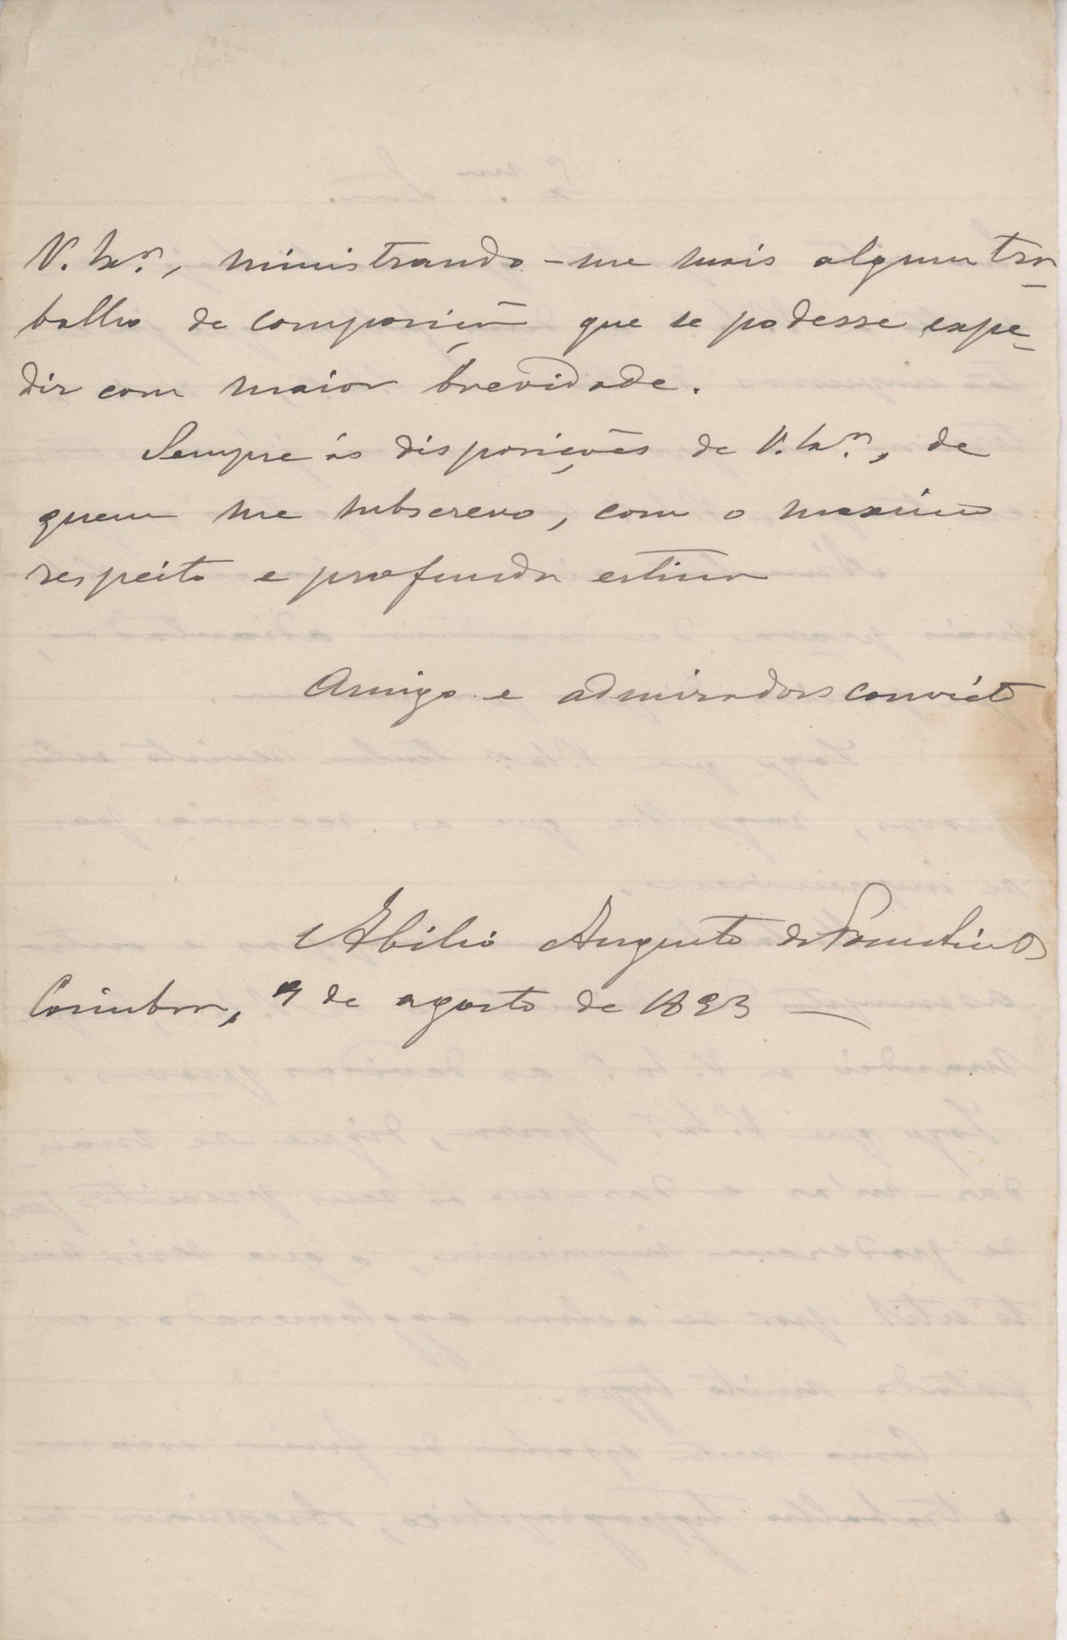 V. Ex.ª, ministrando-me mais algum tra-
balho de composição que se podesse expe-
dir com maior brevidade.
Sempre ás disposições de V. Ex.ª, de
quem me subscrevo, com o maximo
respeito e profunda estima
Amigo e admirador convicto
Abilio Augusto da
Coimbra, 9 de agosto de 1893 —